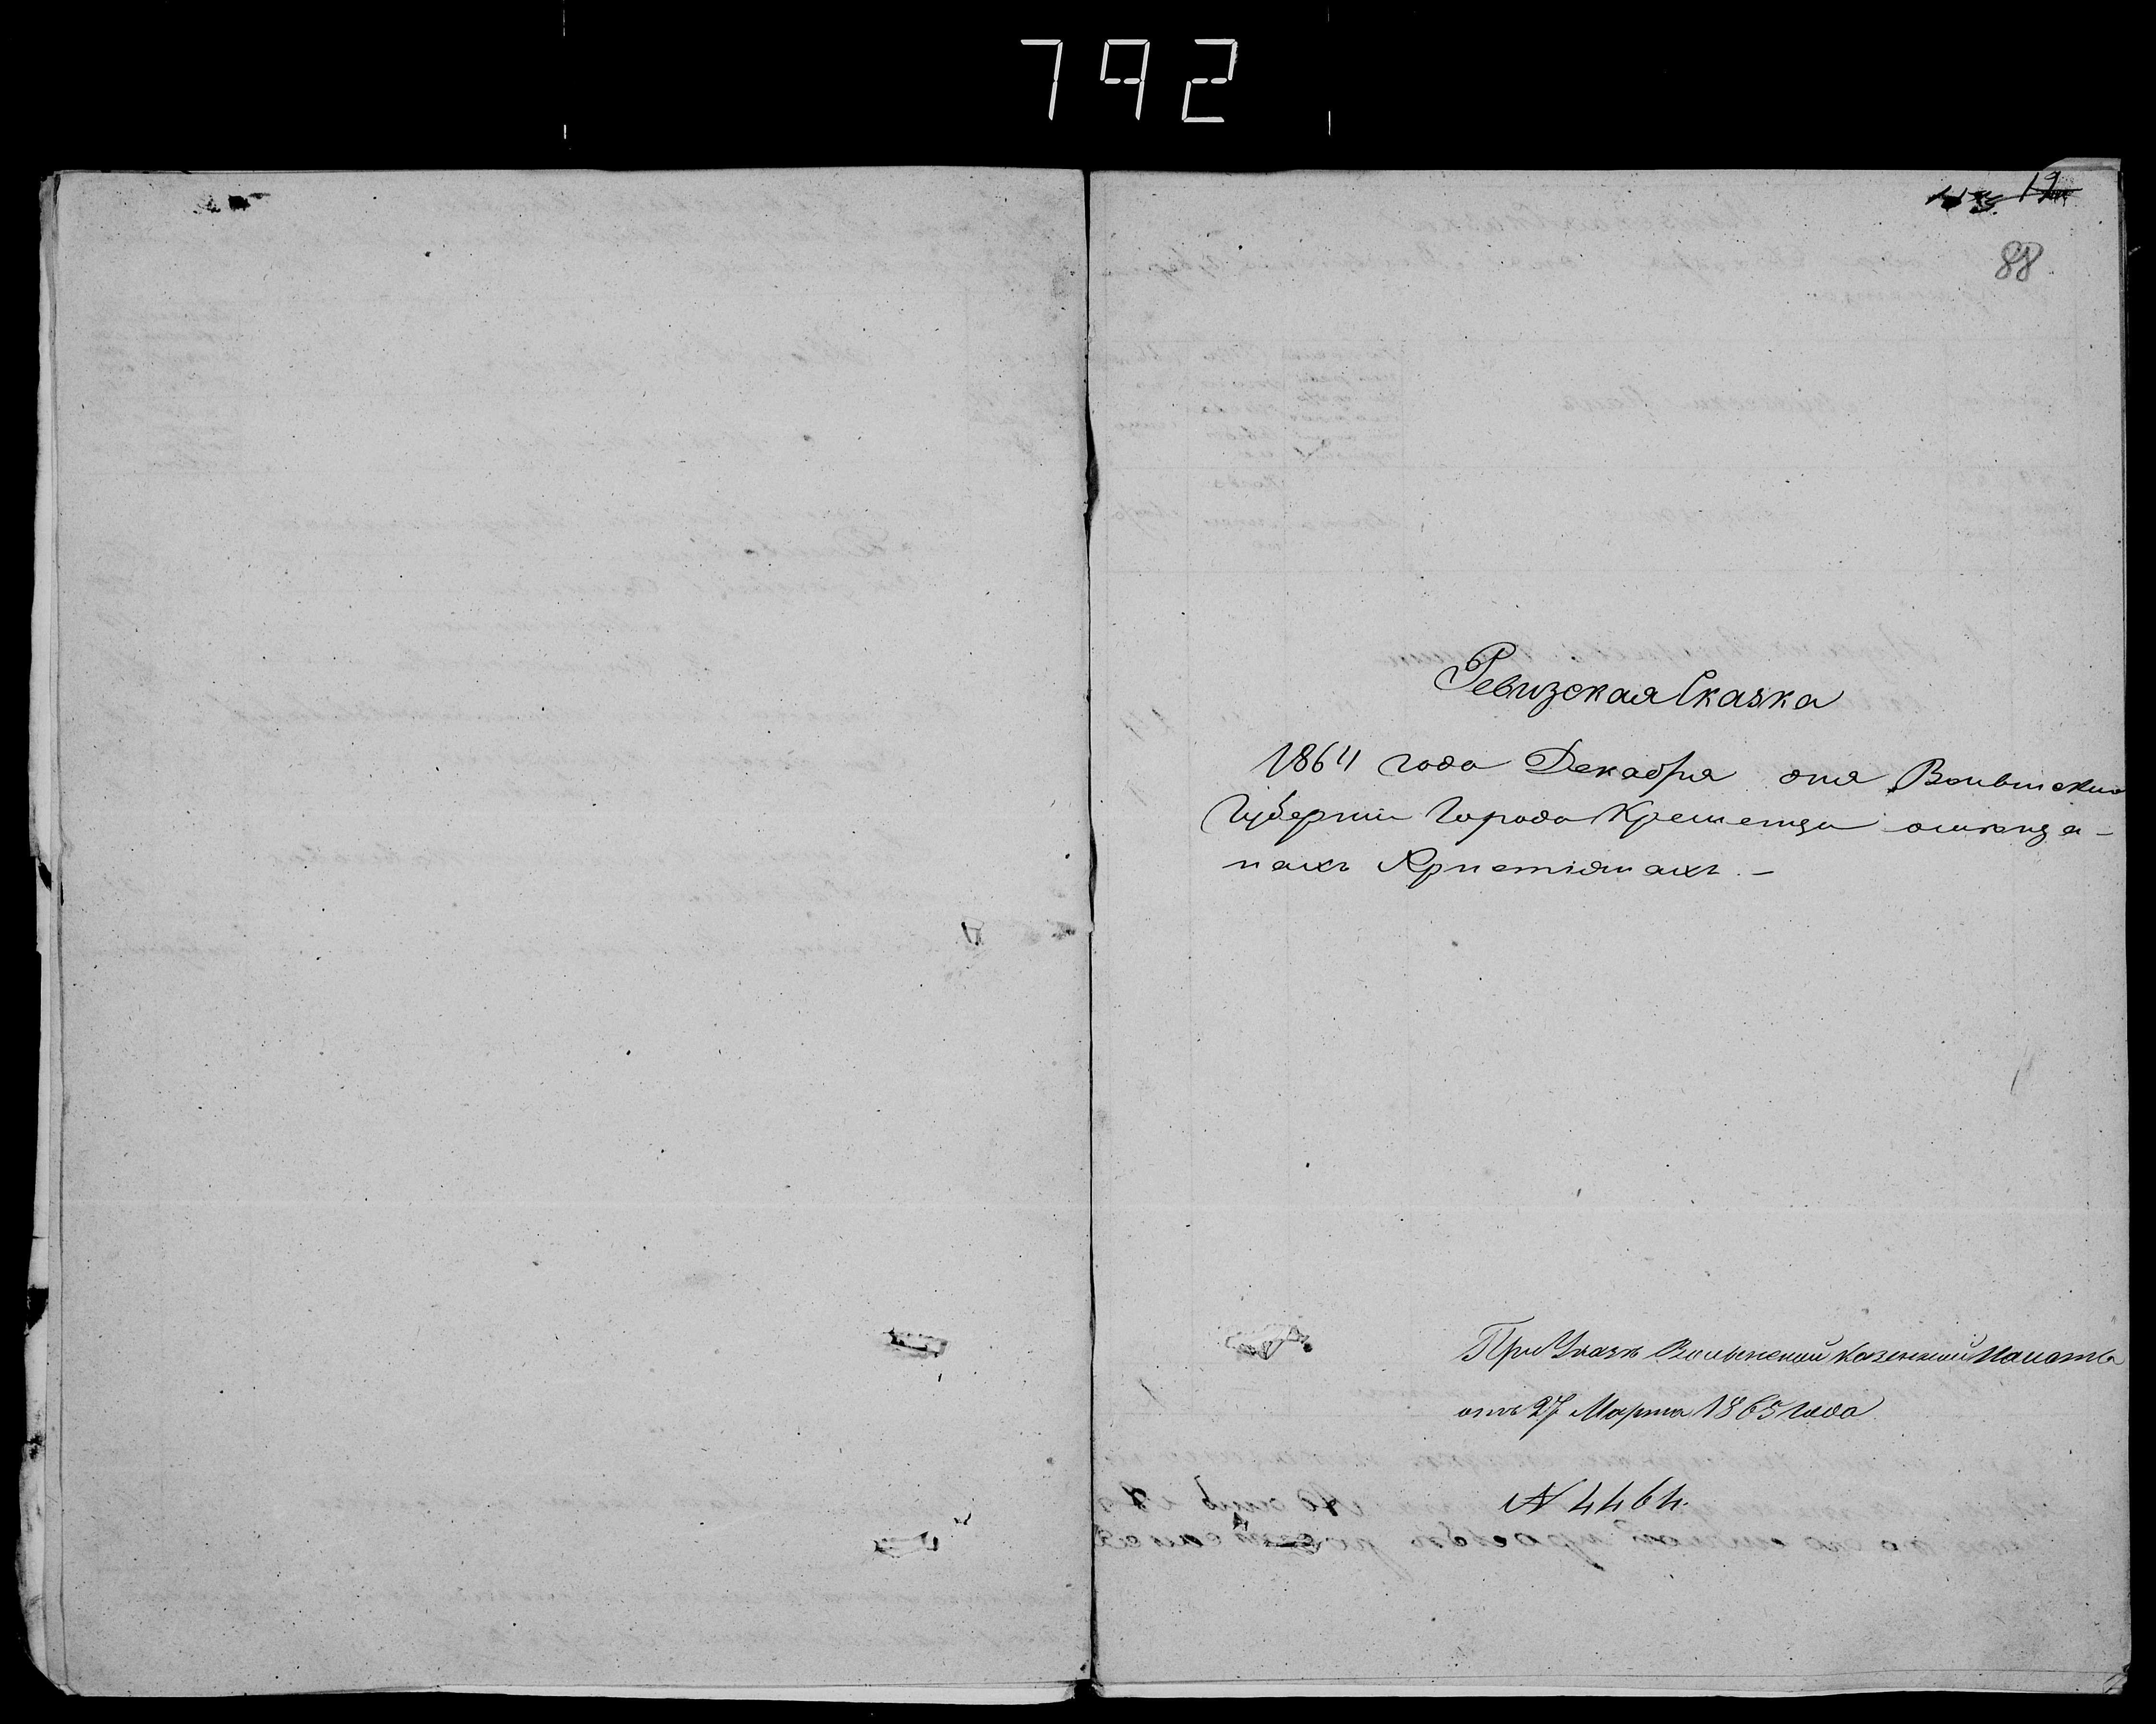 792
12
88
Ревизская Сказка
1864 года Декабря дня Волынской
Губернии Города Кременца омѣща-
нахъ Христіянахъ. –
При Указѣ Волынской Казенной Палаты
отъ 27 Марта 1865 года
N 4464.